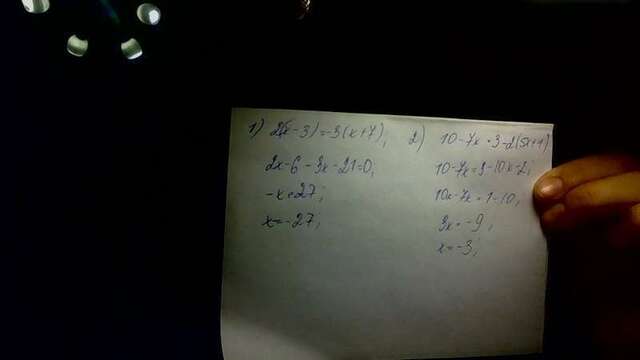 1) 2(x-3)=3(x+7);
2x-6-3x-21=0;
-x=27;
x=-27;
2) 10-7x=3-2(5x+1)
10-7x=3-10x-2;
10x-7x=1-10;
3x=-9;
x=-3;